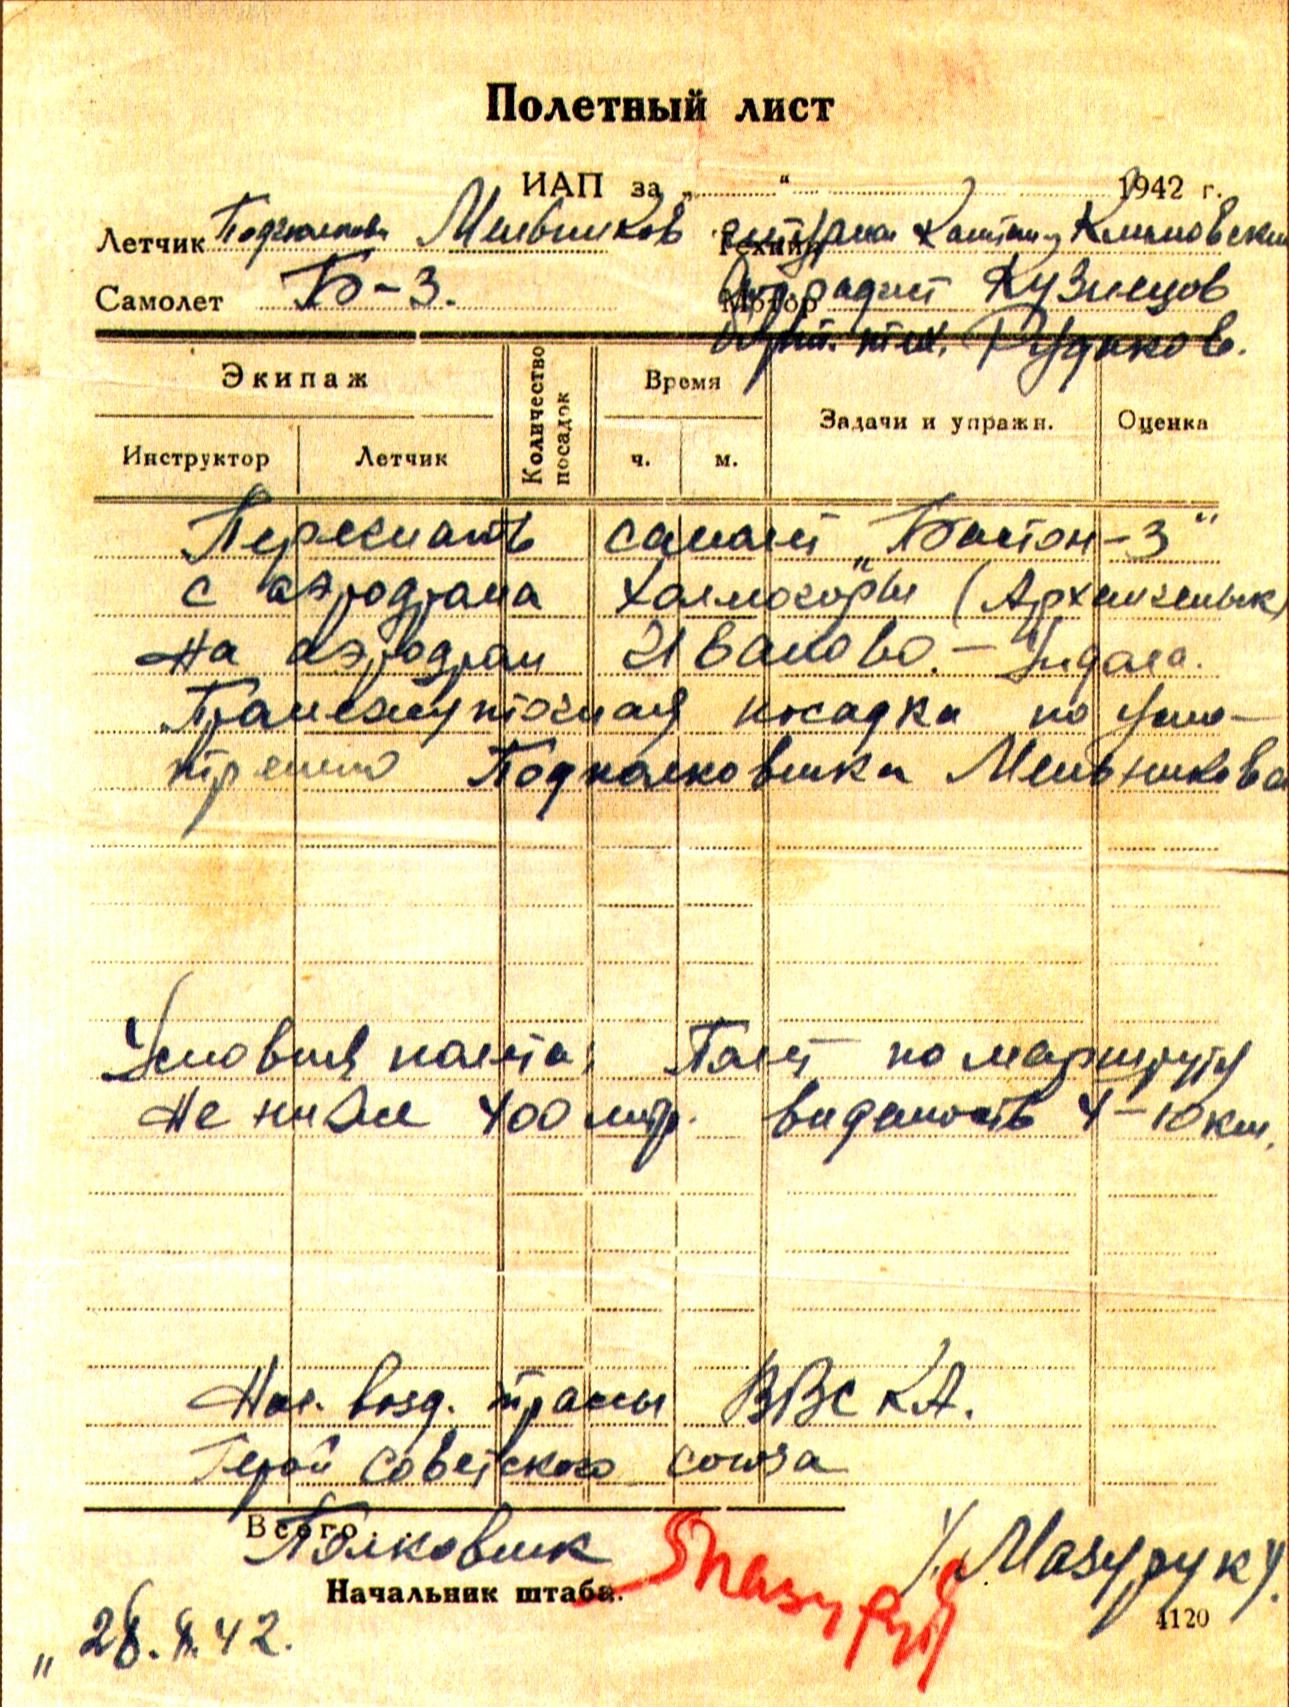 Полетный лист
ИАП за „ “ 1942 г.
Летчик Подполковн Мельников штурман Капитан Климовский
Техник
Самолет Б-3. радист Кузнецов
Мотор
борт. тех. Рудаков.
Экипаж
Количество посадок
Время
Задачи и упражн.
Оценка
Инструктор
Летчик
ч.
м.
Перегнать самолет „Бостон-3“
с аэродрома Холмогоры (Архангельск)
на аэродром Иваново.
Промежуточная посадка по усмо-
трению Подполковника Мельникова
Условия полета: Полет по маршруту
не ниже 400 мтр. видимость 4-10 км.
Нач. возд. трассы ВВС КА.
Герой Советского союза
Всего
Полковник Мазурук
Начальник штаба. Мазурук
4120
„28. .42.